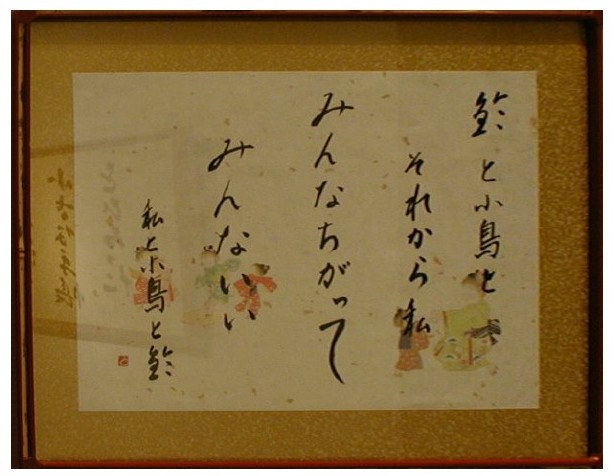 鈴と小鳥と
それから私
みんなちがって
みんないい
私と小鳥と鈴